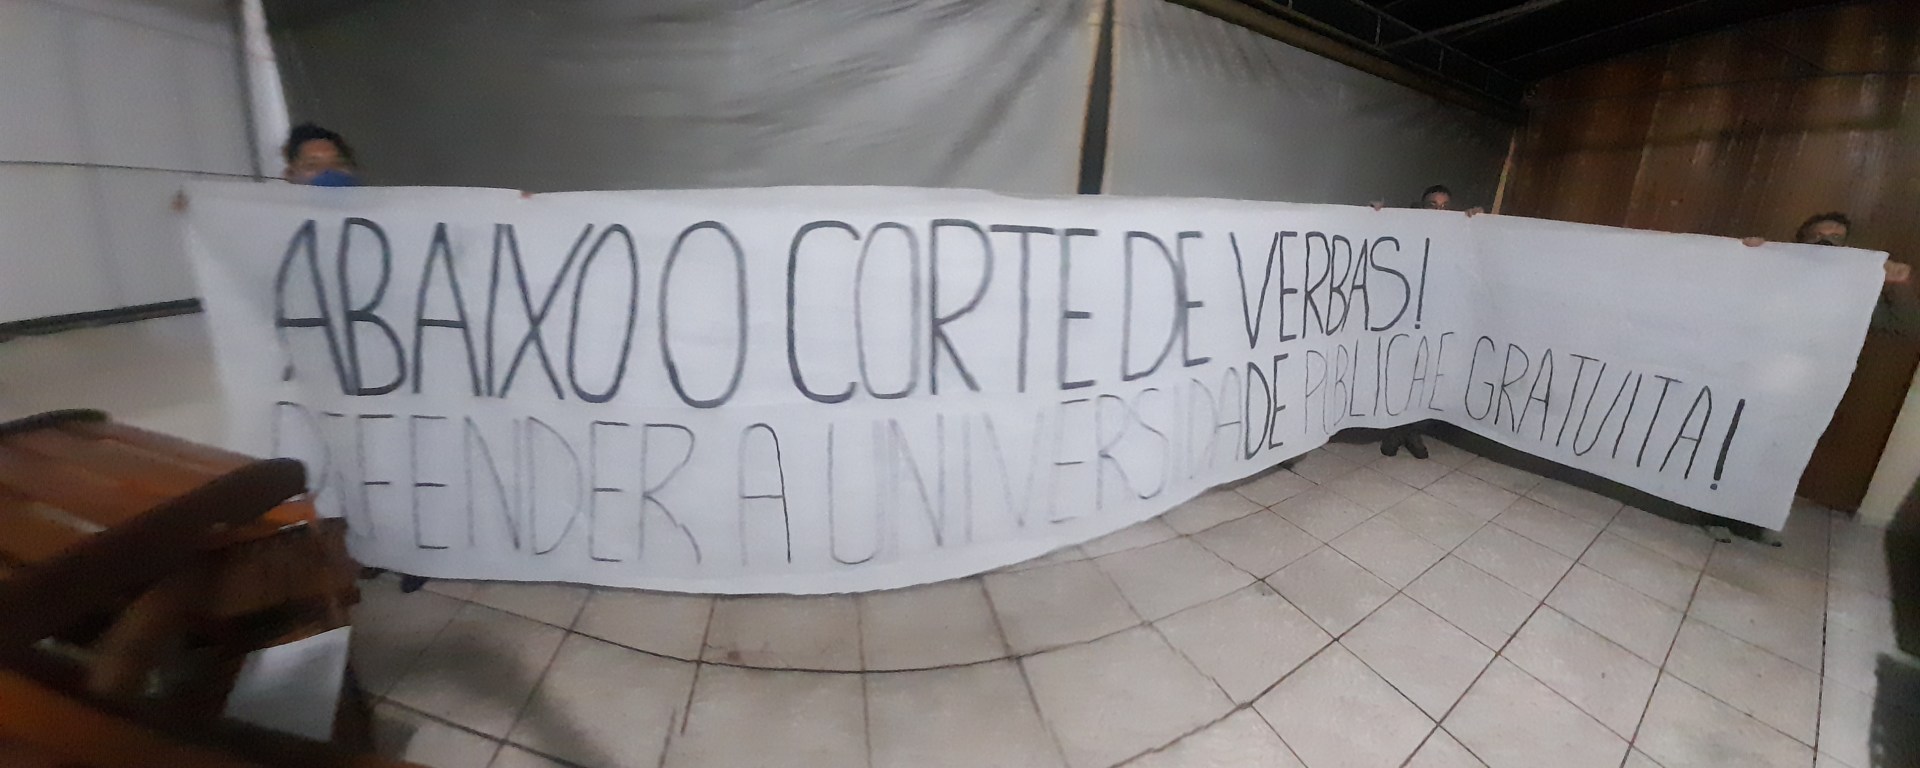 ABAIXO O CORTE DE VERBAS!
DEFENDER A UNIVERSIDADE PÚBLICA E GRATUITA!